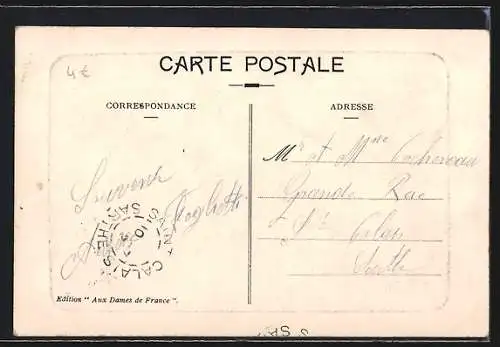 4€
CARTE POSTALE
CORRESPONDANCE
ADRESSE
Mr et Mme
Souvenir
Grande Rue
St Calais
Sarthe
SAINT CALAIS
SARTHE
Edition " Aux Dames de France ".